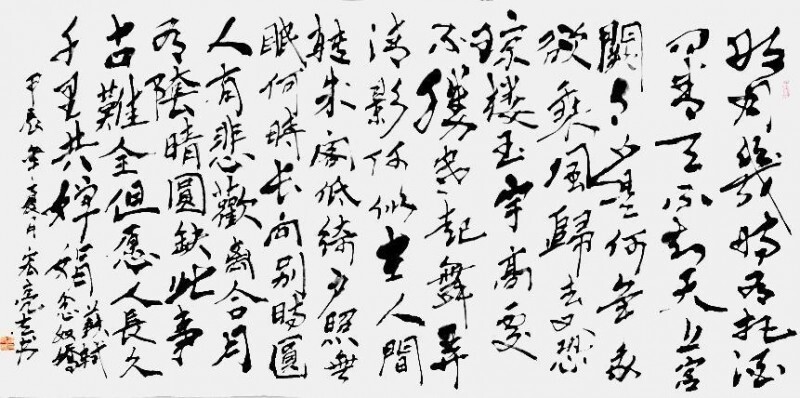 明月幾時有把酒
问青天不知天上宮
闕今夕是何年我
欲乘風歸去又恐
瓊樓玉宇高處
不勝寒起舞弄
清影何似在人間
轉朱阁低綺户照無
眠何時长向别時圓
人有悲歡離合月
有陰晴圓缺此事
古難全但愿人長久
千里共嬋娟 蘇軾念奴嬌
甲辰年夏月宏亮書